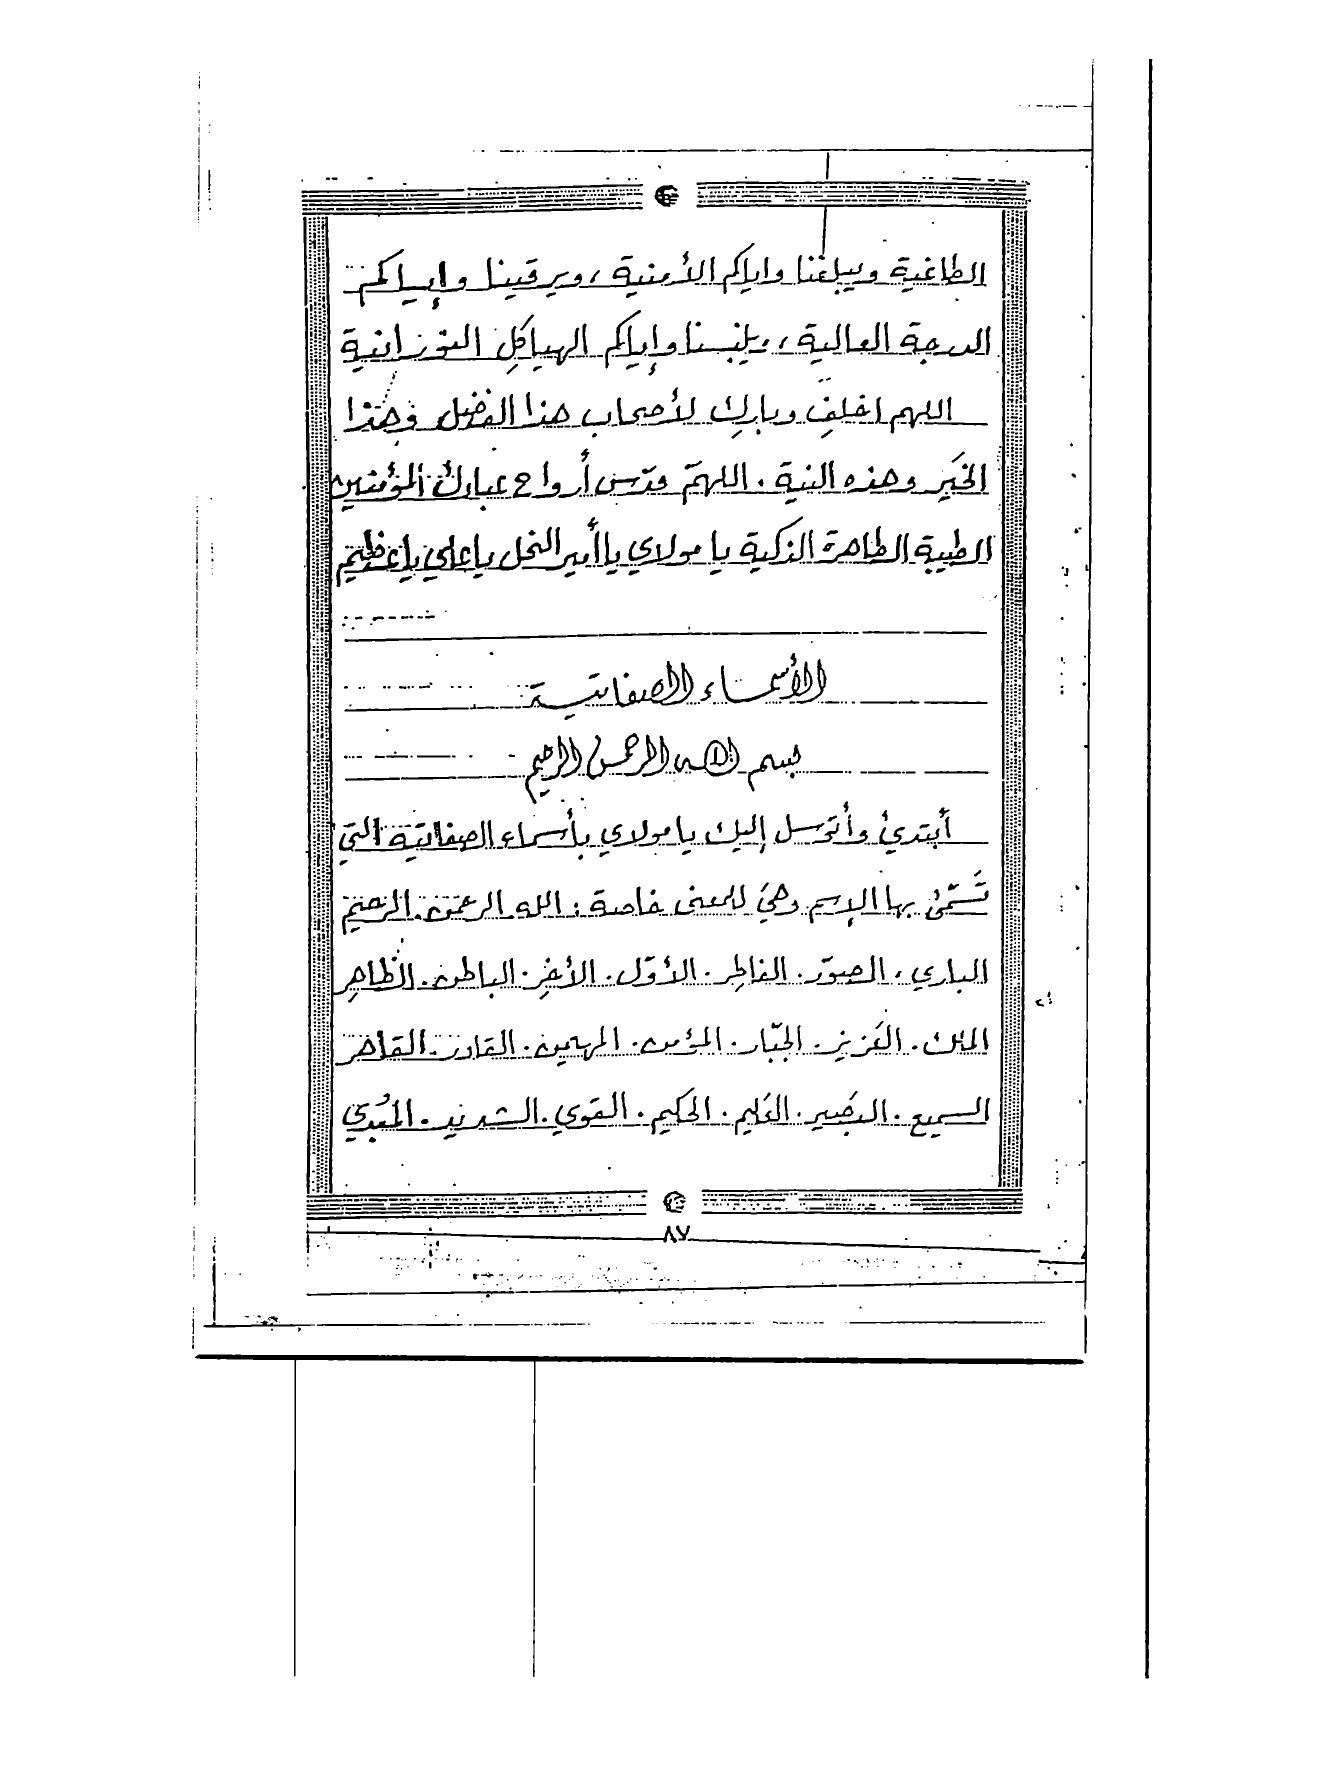 الطاغية ويبلغنا واياكم الأمنية، ويرقينا وإياكم
الدرجة العالية، ويلبسنا وإياكم الهياكل النورانية
اللهم اخلف وبارك لأصحاب هذا الفضل وهذا
الخَير وهذه النية. اللهمّ قدّس أرواح عبادك المؤمنين
الطيبة الطاهرة الذكية يا مولاي يا أمير النحل يا علي يا عظيم
الأسماء الصفاتية
بسم الله الرحمن الرحيم
أبتدئ وأتوسل إليك يا مولاي بأسماء الصفاتية التي
تَسَمّى بها الإسم وهيَ للمعنى خاصة: الله الرحمن. الرحيم
الباري. المصوّر. الفاطِر. الأوّل. الأخِر. الباطن. الظاهِر
الملك. العَزيز. الجبّار. المؤمن. المهيمن. القادر. القاهر
السميع. البَصير. العَليم. الحكيم. القوي. الشديد. المُبدي
٨٧